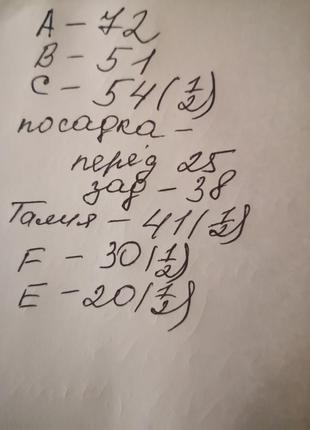 А - 72
В - 51
С - 54 (1/2)
посадка -
перёд 25
зад - 38
Талия - 41 (1/2)
F - 30 (1/2)
E - 20 (1/2)